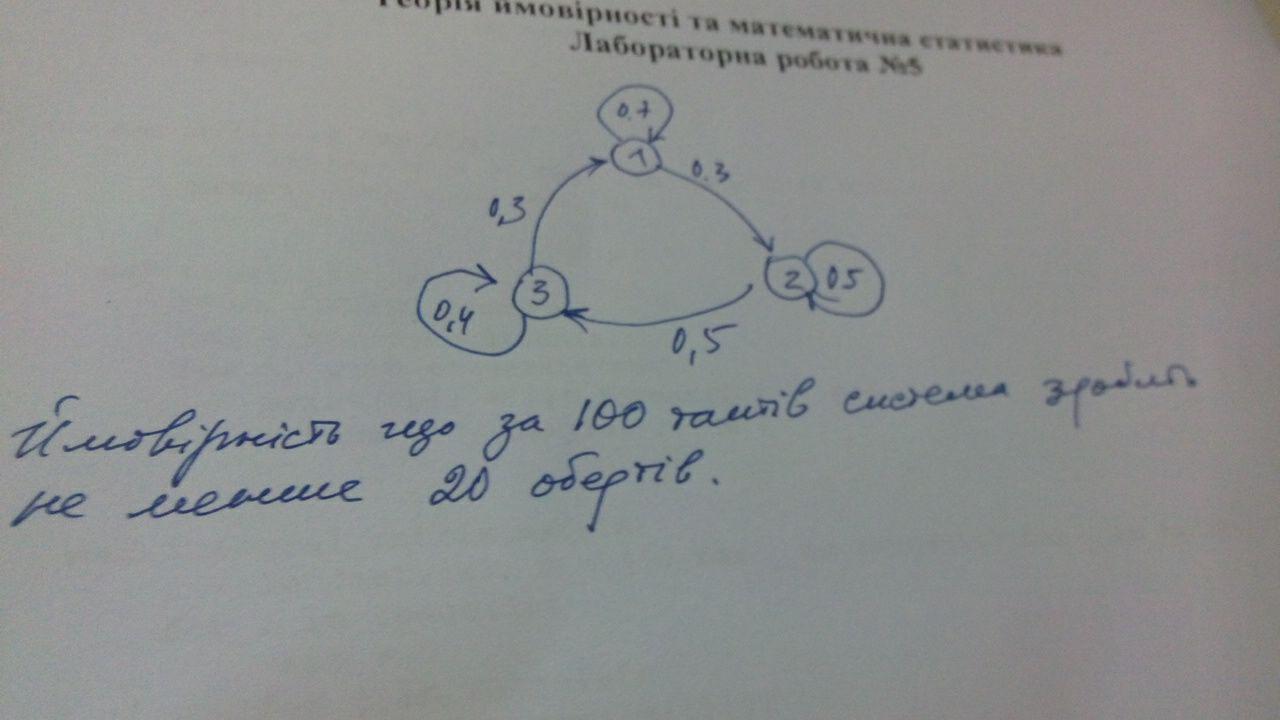 Теорія ймовірності та математична статистика
Лабораторна робота №5
0.7
1
0.3
0,3
3
2
0,5
0,4
0,5
Ймовірність що за 100 тактів система зробить
не менше 20 обертів.